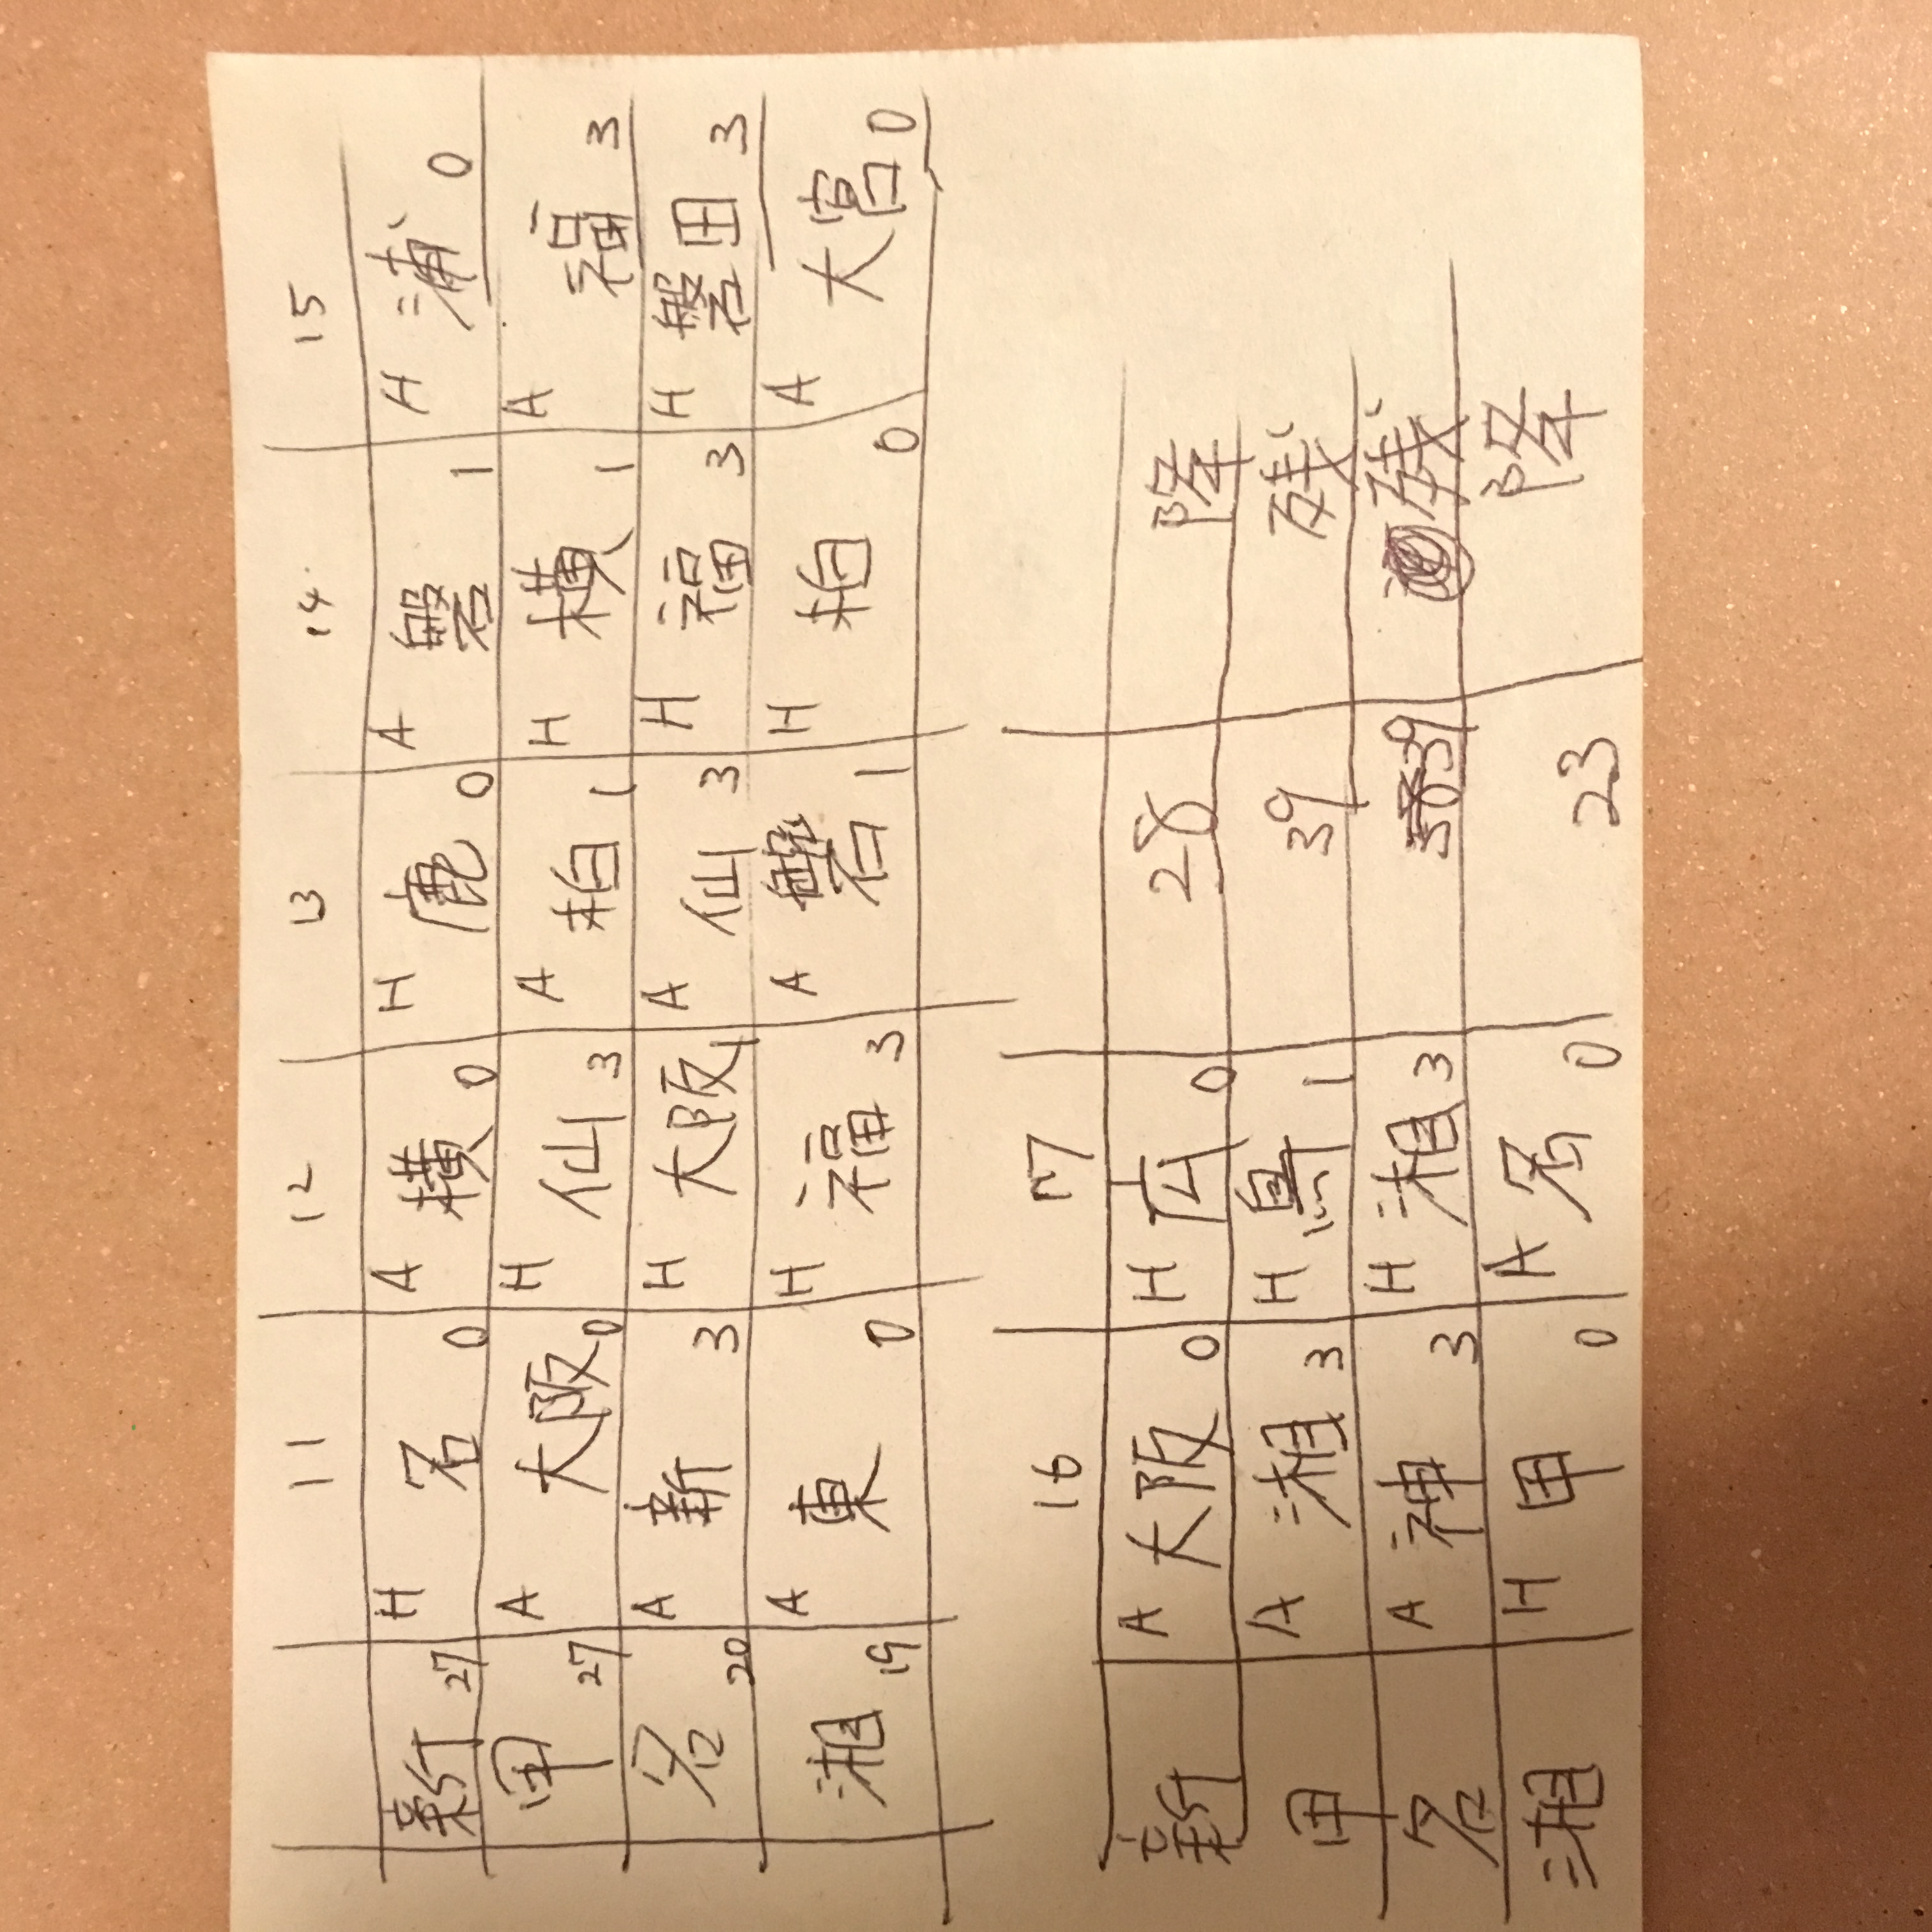 11 12 13 14 15
新 27 H 名 0 A 横 0 H 鹿 0 A 磐 1 H 浦 0
甲 27 A 大阪 0 H 仙 3 A 柏 1 H 横 1 A 福 3
名 20 A 新 3 H 大阪 1 A 仙 3 H 福 3 H 磐田 3
湘 19 A 東 0 H 福 3 A 磐 1 H 柏 0 A 大宮 0
16 17
新 A 大阪 0 H 広 0 28 降
甲 A 湘 3 H 鳥 1 39 残
名 A 神 3 H 湘 3 39 残
湘 H 甲 0 A 名 0 23 降